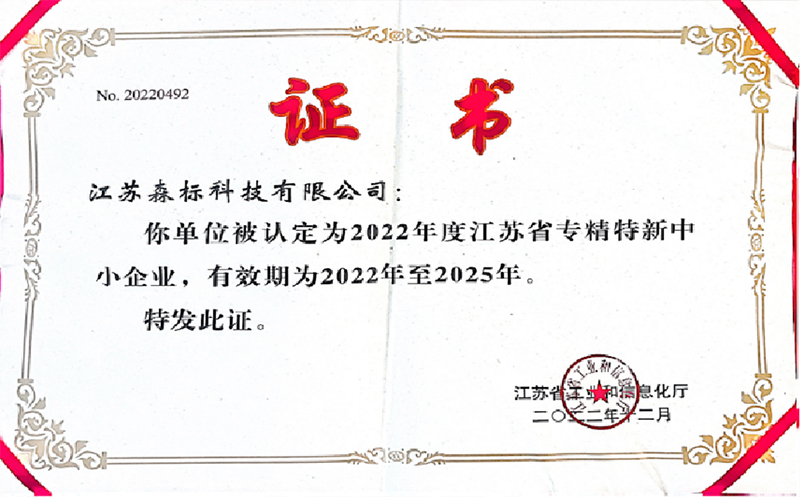 No. 20220492
证书
江苏森标科技有限公司：
你单位被认定为2022年度江苏省专精特新中
小企业，有效期为2022年至2025年。
特发此证。
江苏省工业和信息化厅
江苏省工业和信息化厅
二〇二二年十二月